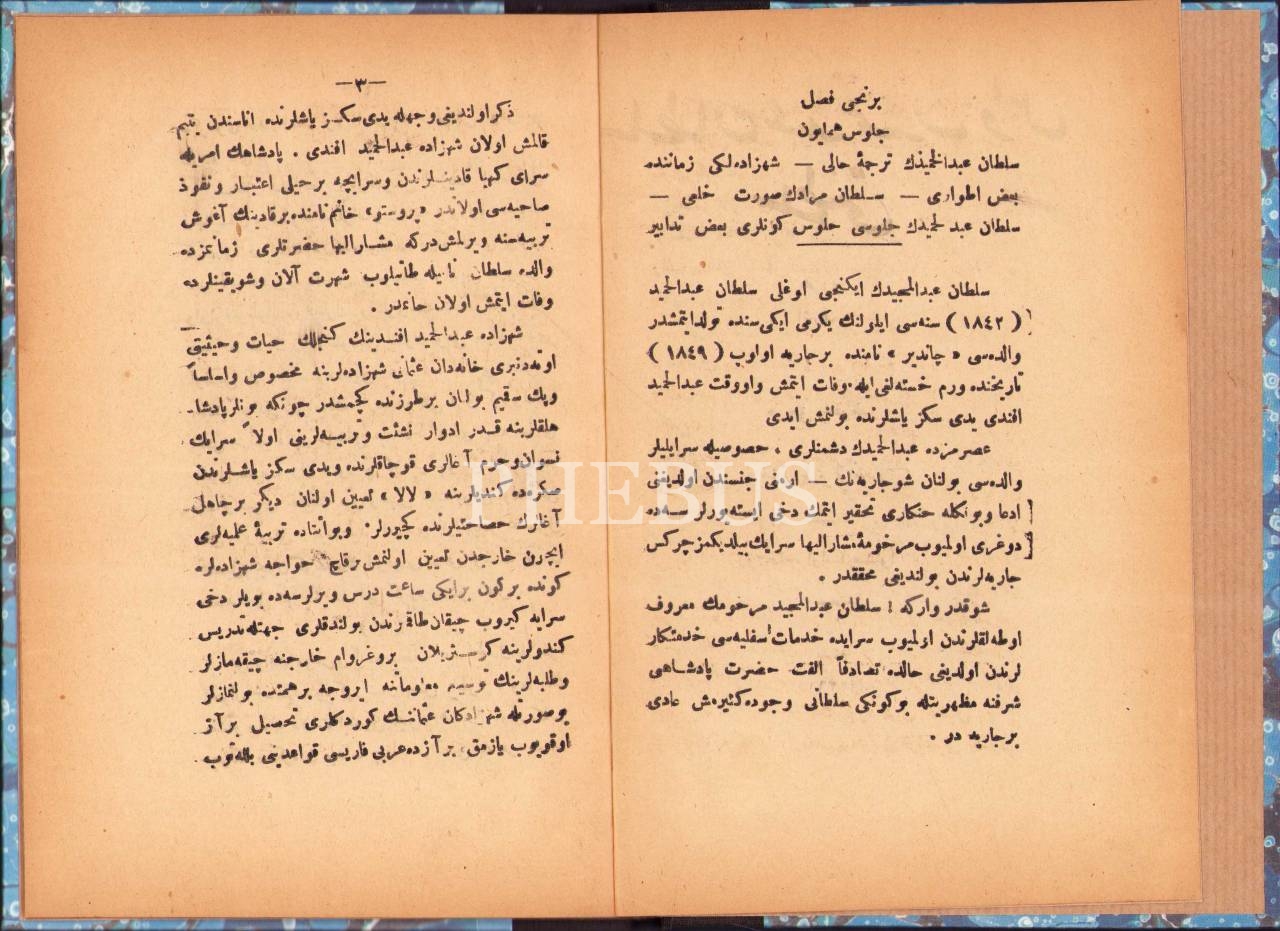 برنجی فصل
جلوس همایون
سلطان عبدالحمیدك ترجمهٔ حالی — شهزاده‌لكی زماننده
بعض اطواری — سلطان مرادك صورت خلعی —
سلطان عبدالحمیدك جلوسی جلوس كونلری بعض تدابیر
سلطان عبدالمجیدك ایكنجی اوغلی سلطان عبدالحمید
( ١٨٤٢ ) سنه‌سی ایلولنك یكرمی ایكی سنده تولد ایتمشدر
والده‌سی « چاندیر » نامنده برجاریه اولوب ( ١٨٤٩ )
تاریخنده ورم خسته‌لغی ایله وفات ایتمش واووقت عبدالحمید
افندی یدی سكز یاشلرنده بولنمش ایدی
عصرمزده عبدالحمیدك دشمنلری ، خصوصیله سرایلیلر
والده‌سی بولنان شوجاریه‌نك — ارمنی جنسندن اولدیغنی
ادعا وبونكله خنكاری تحقیر ایتمك دخی ایسته‌یورلرسه‌ده
دوغری اولمیوب مرحومهٔ مشارالیها سرایك بیلدیكمز چركس
جاریه‌لرندن بولندیغی محققدر .
شوقدر واركه ! سلطان عبدالمجید مرحومك معروف
اوطه‌لقلرندن اولمیوب سرایده خدمات سفلیه‌سی خدمتكار
لرندن اولدیغی حالده تصادفاً الفت حضرت پادشاهی
شرفنه مظهریتله بوكونكی سلطانی وجوده كتیرمش عادی
برجاریه در .
—٣—
ذكر اولندیغی وجهله یدی سكز یاشلرنده اناسندن یتیم
قالمش اولان شهزاده عبدالحمید افندی . پادشاهك امریله
سرای كهیا قادینلرندن وسرایجه برخیلی اعتبار و نفوذ
صاحبه‌سی اولاندر «پروستو» خانم نامنده برقادینك آغوش
تربیه‌سنه ویرلمش‌دركه مشارالیها حضرتلری زمانمزده
والده سلطان نامیله طانیلوب شهرت آلان وشو یقینلرده
وفات ایتمش اولان خانمدر .
شهزاده عبدالحمید افندینك كنجلك حیات وحیثیتی
اوته‌دنبری خانه‌دان عثمانی شهزاده‌لرینه مخصوص واساساً
وپك سقیم بولنان برطرزنده كچمشدر چونكه بونلر پادشا‌ـ
هلقلرینه قدر ادوار نشئت وتربیه‌لرینی اولاً سرایك
نسوان وحرم آغالری قوجاقلرنده ویدی سكز یاشلرندن
صكره‌ده كندیلرینه « لالا » تعیین اولنان دیكر برجاهل
آغالرك مصاحبتلرنده كچیررلر . وبواثناده تربیهٔ علمیه‌لری
ایچون خارجدن تعیین اولنمش برقاچ خواجه شهزاده‌لره
كونده بركون برایكی ساعت درس ویررلرسه‌ده بویلر دخی
سرایه كیروب چیقان طاقمرندن بولندقلری جهتله تدریس
كندولرینه كوستریلان پروغرام خارجنه چیقه‌مازلر
وطلبه‌لرینك توسیع معلوماتنه ایروجه برهمتده بولنمازلر
بوصورتله شهزادكان عثمانینك كوردكلری تحصیل برآز
اوقویوب یازمق، برآزده عربی فارسی قواعدینی بلله‌توب
PHEBUS